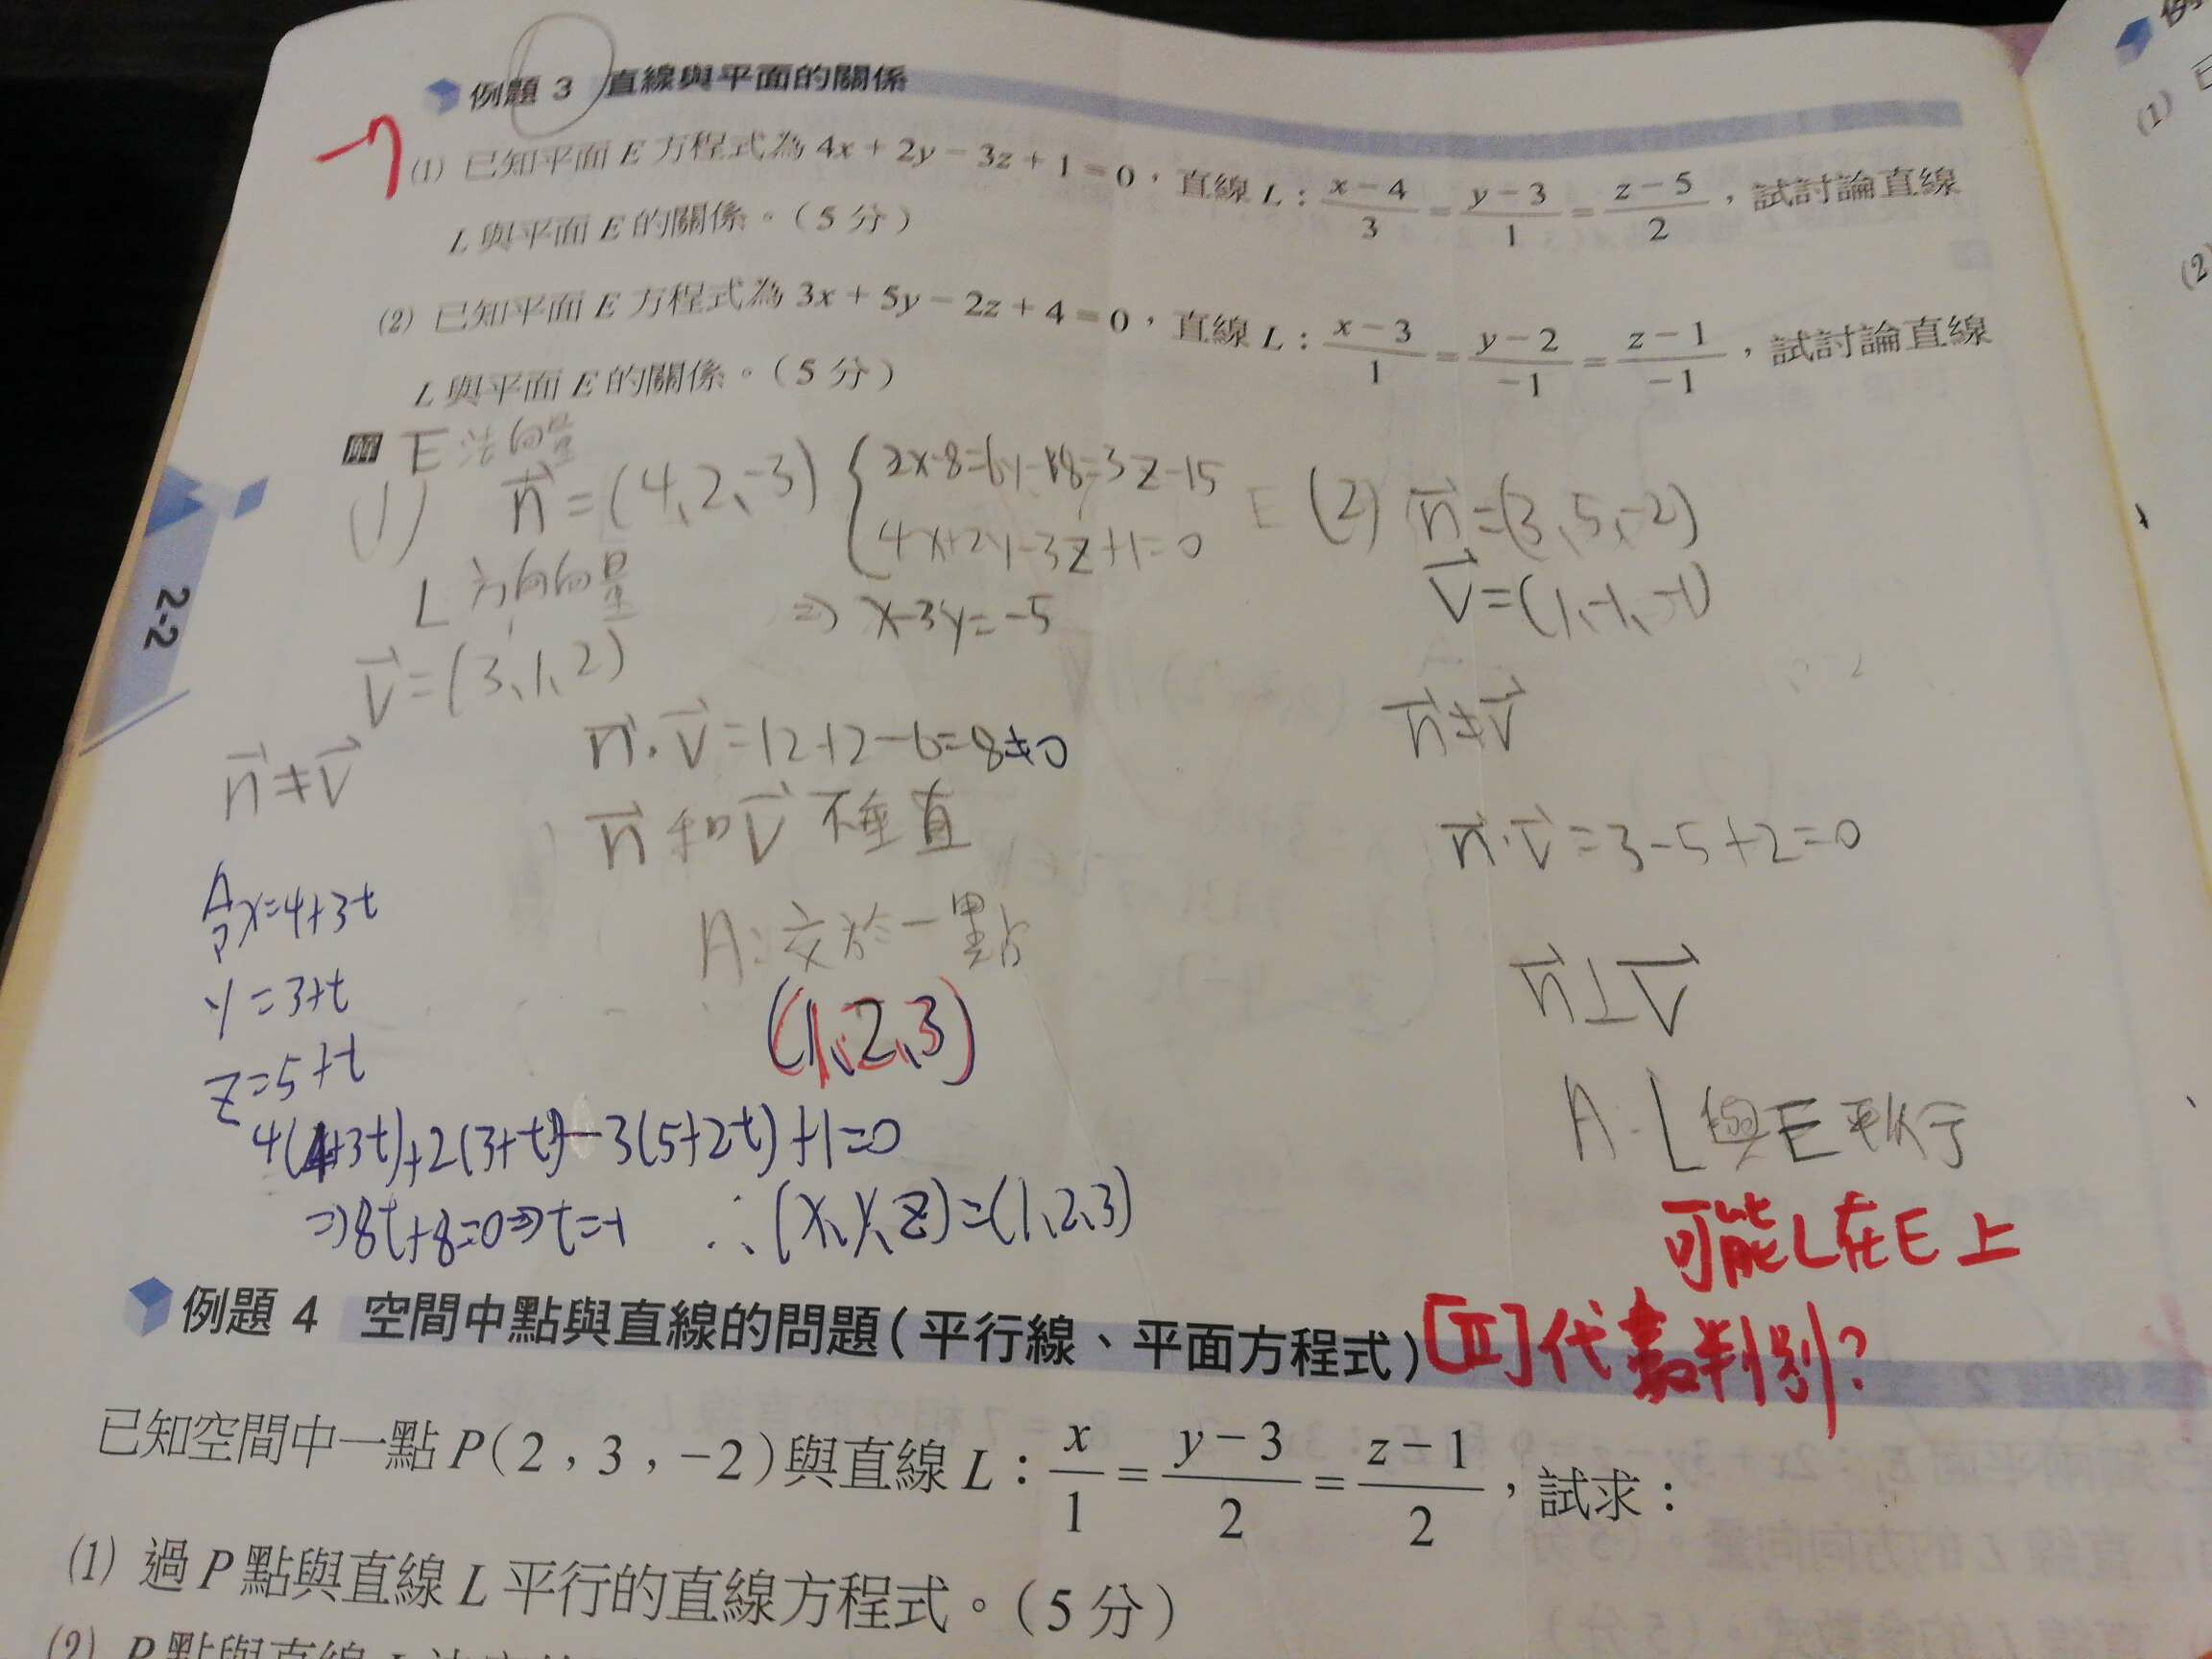 例題 3 直線與平面的關係
(1) 已知平面 E 方程式為 4x + 2y − 3z + 1 = 0，直線 L：(x − 4)/3 = (y − 3)/1 = (z − 5)/2，試討論直線
L 與平面 E 的關係。（5 分）
(2) 已知平面 E 方程式為 3x + 5y − 2z + 4 = 0，直線 L：(x − 3)/1 = (y − 2)/−1 = (z − 1)/−1，試討論直線
L 與平面 E 的關係。（5 分）
解 E 法向量
(1) n⃗ = (4、2、-3)
L 方向向量
v⃗ = (3、1、2)
n⃗ ≠ v⃗
2x-8=6y-18=3z-15
4x+2y-3z+1=0
⇒ x-3y=-5
n⃗ · v⃗ = 12+2-6=8≠0
n⃗ 和 v⃗ 不垂直
A：交於一點
(1、2、3)
令x=4+3t
y=3+t
z=5+t
4(4+3t)+2(3+t)-3(5+2t)+1=0
⇒8t+8=0⇒t=-1 ∴(x、y、z)=(1、2、3)
(2) n⃗ = (3、5、-2)
v⃗ = (1、-1、-1)
n⃗ ≠ v⃗
n⃗ · v⃗ = 3-5+2=0
n⃗ ⊥ v⃗
A：L與E平行
可能L在E上
[II]代 判別?
例題 4 空間中點與直線的問題（平行線、平面方程式）
已知空間中一點 P(2 , 3 , −2)與直線 L：x/1 = (y − 3)/2 = (z − 1)/2，試求：
(1) 過 P 點與直線 L 平行的直線方程式。（5 分）
(2) P 點與直線 L
2-2
(1)
(2)